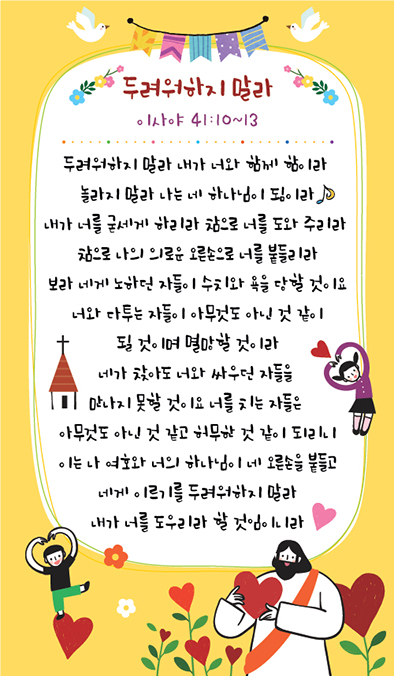 두려워하지 말라
이사야 41:10~13
두려워하지 말라 내가 너와 함께 함이라
놀라지 말라 나는 네 하나님이 됨이라
내가 너를 굳세게 하리라 참으로 너를 도와 주리라
참으로 나의 의로운 오른손으로 너를 붙들리라
보라 네게 노하던 자들이 수치와 욕을 당할 것이요
너와 다투는 자들이 아무것도 아닌 것 같이
될 것이며 멸망할 것이라
네가 찾아도 너와 싸우던 자들을
만나지 못할 것이요 너를 치는 자들은
아무것도 아닌 것 같고 허무한 것 같이 되리니
이는 나 여호와 너의 하나님이 네 오른손을 붙들고
네게 이르기를 두려워하지 말라
내가 너를 도우리라 할 것임이니라